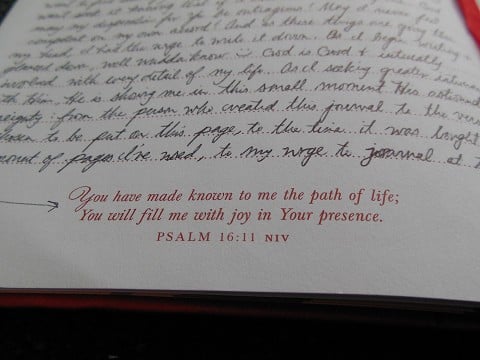 want
and is
may disposition for ye be outrageous! May I never feel
complacent on my own accord! And as these things are going thru
my head, I had the urge to write it down. As I began writing &
glanced down, well wadda know :) God is Good & intimately
involved with every detail of my life. As I seeking greater intimacy
with Him, He is showing me in this small moment His astounding
from the person who created this journal to the verse
chosen to be put on this page, to the time it was bought
amount of pages I've used, to my urge to journal at
You have made known to me the path of life;
You will fill me with joy in Your presence.
PSALM 16:11 NIV